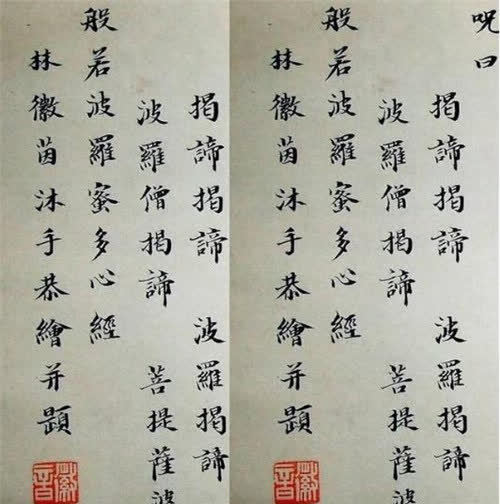 呪曰
揭諦揭諦 波羅揭諦
波羅僧揭諦 菩提薩
般若波羅蜜多心經
林徽茵沐手恭繪并題
徽音
揭諦揭諦 波羅揭諦
波羅僧揭諦 菩提薩
般若波羅蜜多心經
林徽茵沐手恭繪并題
徽音